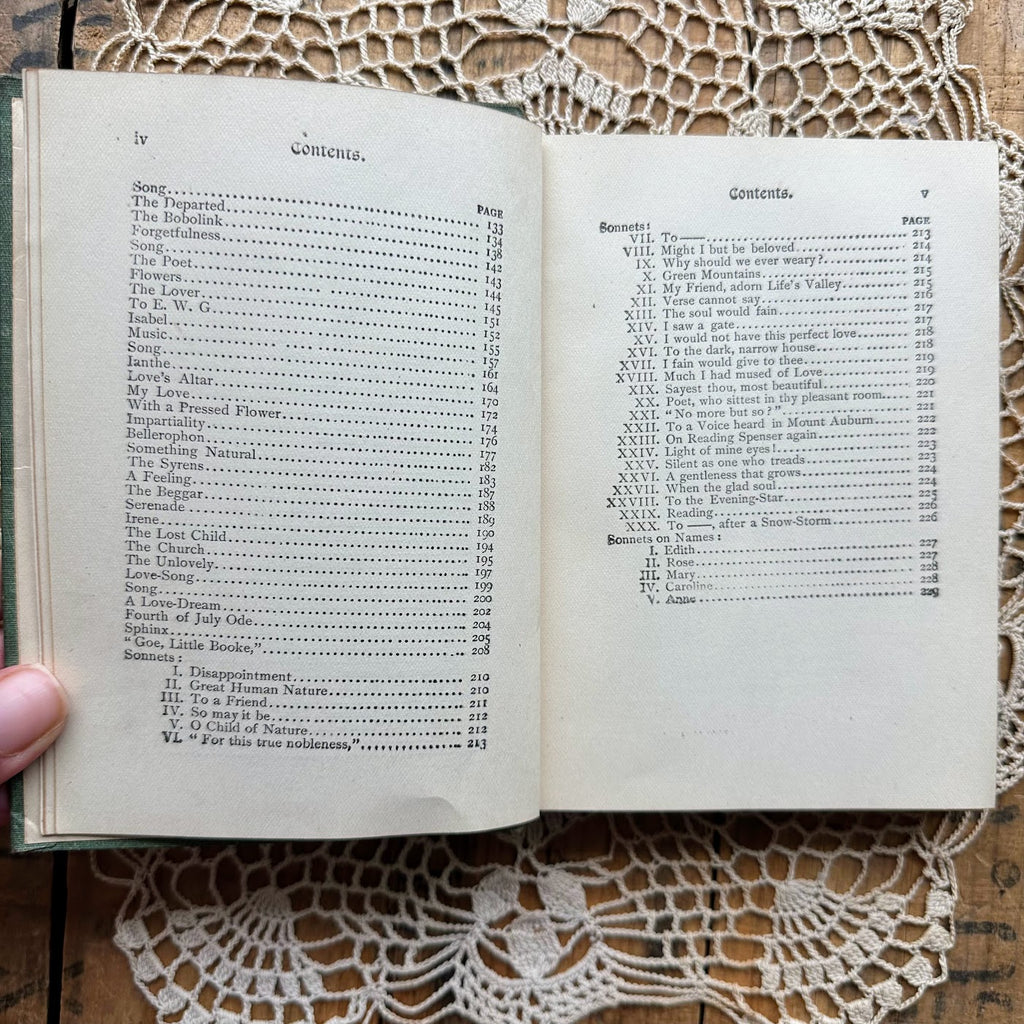 iv
Contents.
PAGE
Song 133
The Departed 134
The Bobolink 138
Forgetfulness 142
Song 143
The Poet 144
Flowers 145
The Lover 151
To E. W. G. 152
Isabel 155
Music 157
Song 161
Ianthe 164
Love's Altar 170
My Love 172
With a Pressed Flower 174
Impartiality 176
Bellerophon 177
Something Natural 182
The Syrens 183
A Feeling 187
The Beggar 188
Serenade 189
Irene 190
The Lost Child 194
The Church 195
The Unlovely 197
Love-Song 199
Song 200
A Love-Dream 202
Fourth of July Ode 204
Sphinx 205
"Goe, Little Booke," 208
Sonnets:
I. Disappointment 210
II. Great Human Nature 210
III. To a Friend 211
IV. So may it be 212
V. O Child of Nature 212
VI. "For this true nobleness," 213
Contents.
v
PAGE
Sonnets:
VII. To —— 213
VIII. Might I but be beloved 214
IX. Why should we ever weary? 214
X. Green Mountains 215
XI. My Friend, adorn Life's Valley 215
XII. Verse cannot say 216
XIII. The soul would fain 217
XIV. I saw a gate 217
XV. I would not have this perfect love 218
XVI. To the dark, narrow house 218
XVII. I fain would give to thee 219
XVIII. Much I had mused of Love 219
XIX. Sayest thou, most beautiful 220
XX. Poet, who sittest in thy pleasant room 221
XXI. "No more but so?" 221
XXII. To a Voice heard in Mount Auburn 222
XXIII. On Reading Spenser again 222
XXIV. Light of mine eyes! 223
XXV. Silent as one who treads 223
XXVI. A gentleness that grows 224
XXVII. When the glad soul 224
XXVIII. To the Evening-Star 225
XXIX. Reading 226
XXX. To ——, after a Snow-Storm 226
Sonnets on Names:
I. Edith 227
II. Rose 227
III. Mary 228
IV. Caroline 228
V. Anne 229